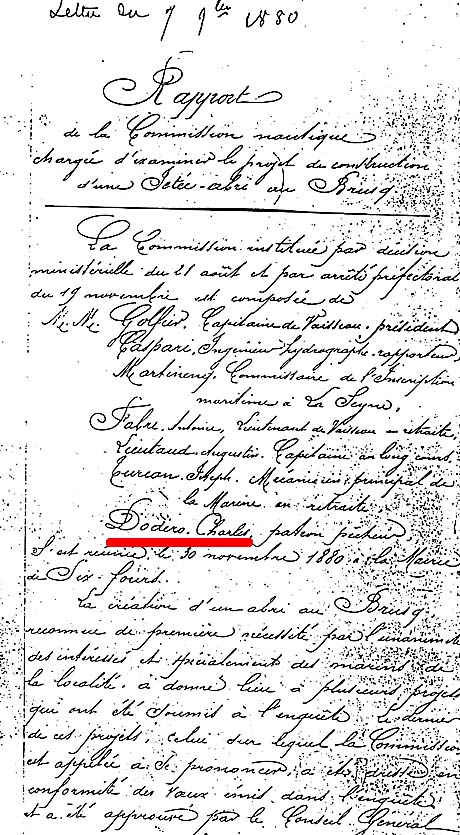 Lettre du 7 9bre 1880
Rapport
de la Commission nautique
chargée d'examiner le projet de construction
d'une Jetée-abri au Brusq
La Commission instituée par décision
ministérielle du 21 août et par arrêté préfectoral
du 19 novembre est composée de
M.M. Golfier, Capitaine de Vaisseau, président
Caspari, Ingénieur hydrographe, rapporteur,
Martinenq, Commissaire de l'Inscription
maritime à La Seyne,
Fabre, Antoine, Lieutenant de Vaisseau en retraite,
Lieutaud Augustin, Capitaine au long cours,
Turcan, Joseph, Mécanicien principal de
la Marine en retraite
Dodero. Charles, patron pêcheur,
S'est réunie le 30 novembre 1880 à la Mairie
de Six-fours.
La création d'un abri au Brusq
reconnue de première nécessité par l'unanimité
des intéressés et spécialement des marins de
la localité, a donné lieu à plusieurs projets
qui ont été soumis à l'enquête. Le dernier
de ces projets, celui sur lequel la Commission
est appelée à se prononcer, a été dressé en
conformité des vœux émis dans l'enquête
et a été approuvé par le Conseil Général